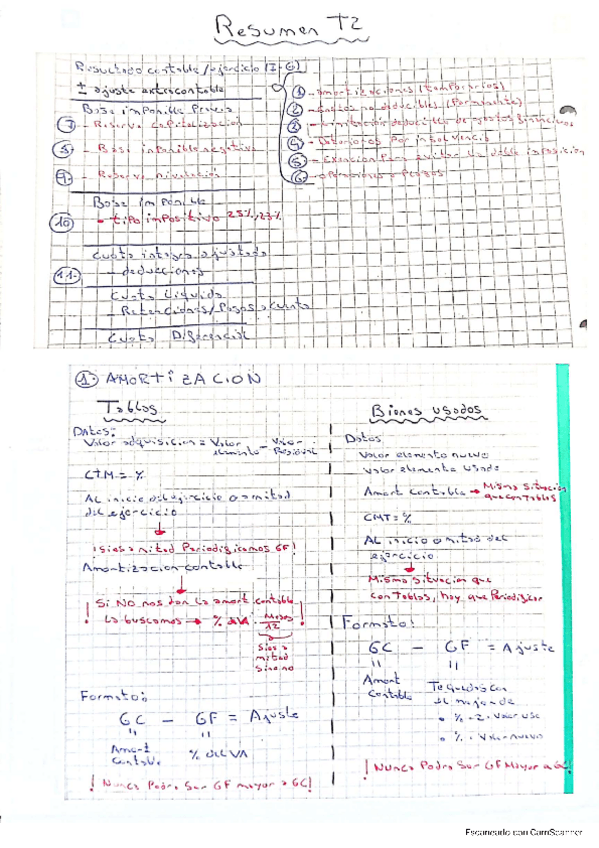 Resumen T2
Resultado contable / ejercicio (I-G)
± ajuste extracontable
Base imponible Previa
7 - Reserva capitalización
8 - Base imponible negativa
9 - Reserva nivelación
Base imponible
10 - tipo impositivo 25%, 23%
Cuota integra ajustada
11 - deducciones
Cuota Liquida
- Retenciones / Pagos a cuenta
Cuota Diferencial
1 - amortizaciones (temporarios)
2 - Gastos no deducibles (Permanente)
3 - Limitación deducible de gastos financieros
4 - Deterioros por insolvencia
5 - Exencion para evitar la doble imposición
6 - operaciones a Plazos
1. AMORTIZACION
Tablas
Datos:
Valor adquisicion = Valor elemento - Valor Residual
CTM = %
AL inicio del ejercicio o a mitad
del ejercicio
¡Si es a mitad Periodificamos GF!
Amortizacion contable
¡Si NO nos dan la amort contable!
la buscamos → % dVA · Meses/12
Si es a
mitad
sino no
Formato:
GC - GF = Ajuste
Amort
Contable
% del VA
¡Nunca Podra Ser GF mayor a GC!
Bienes usados
Datos
Valor elemento nuevo
Valor elemento usado
Amort contable → Misma situación
que con Tablas
CMT = %
AL inicio o mitad del
ejercicio
Misma situacion que
con Tablas, hay que Periodificar
Formato:
GC - GF = Ajuste
Amort
Contable
Te quedas con
el mayor de
• % · 2 · Valor uso
• % · Valor nuevo
¡Nunca Podra Ser GF Mayor a GC!
Escaneado con CamScanner